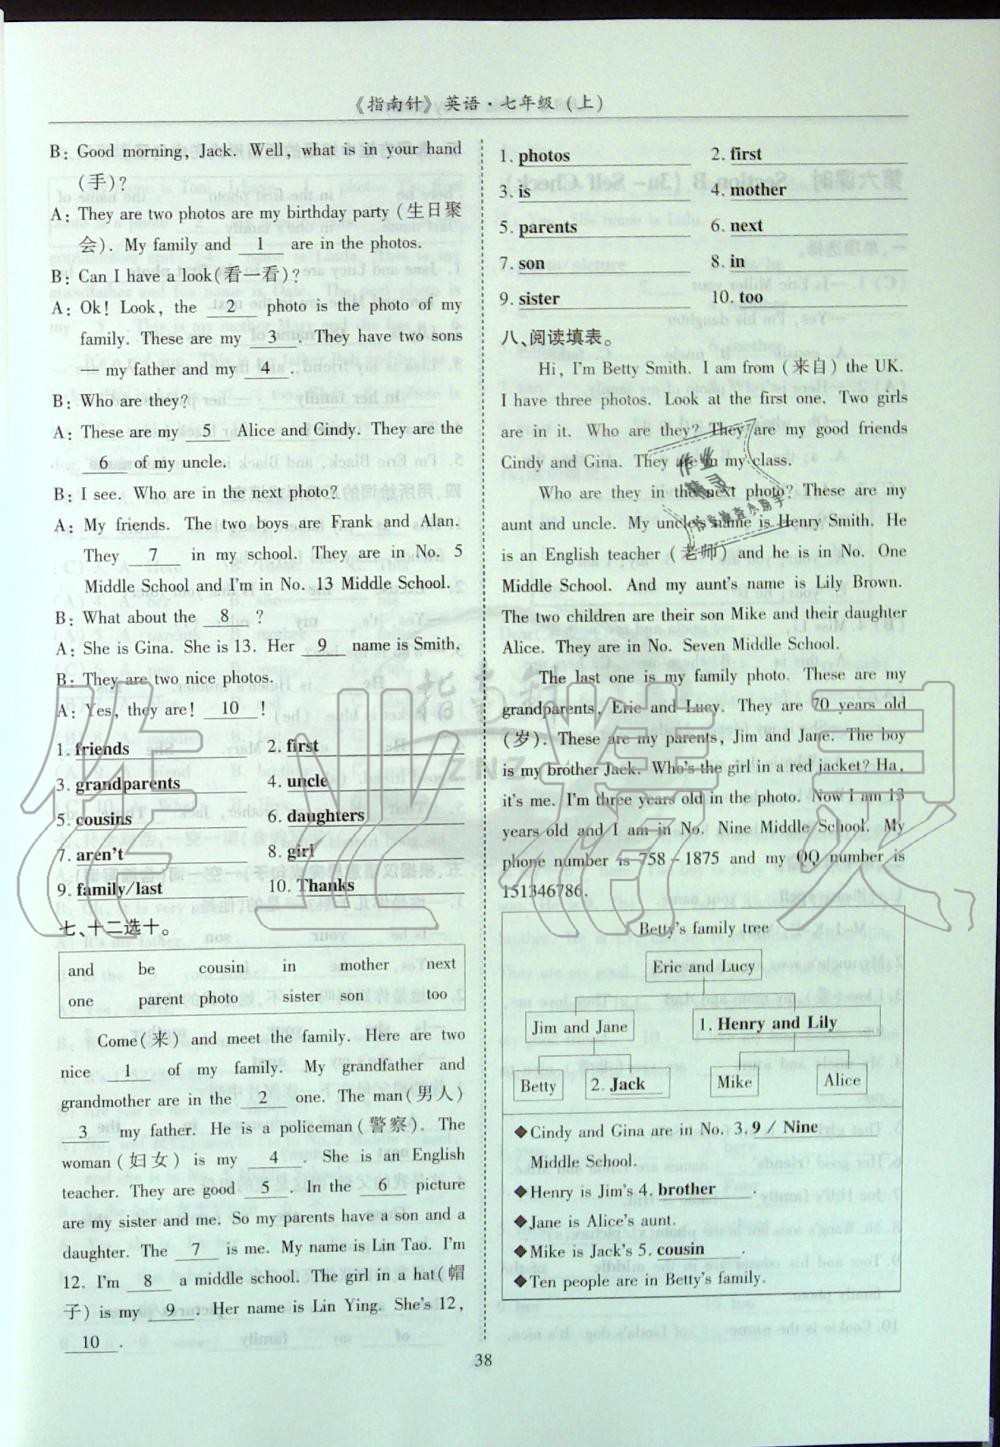 《指南针》英语·七年级(上)
B: Good morning, Jack. Well, what is in your hand
(手)?
A: They are two photos are my birthday party (生日聚
会). My family and 1 are in the photos.
B: Can I have a look(看一看)?
A: Ok! Look, the 2 photo is the photo of my
family. These are my 3 . They have two sons
— my father and my 4 .
B: Who are they?
A: These are my 5 Alice and Cindy. They are the
6 of my uncle.
B: I see. Who are in the next photo?
A: My friends. The two boys are Frank and Alan.
They 7 in my school. They are in No. 5
Middle School and I'm in No. 13 Middle School.
B: What about the 8 ?
A: She is Gina. She is 13. Her 9 name is Smith.
B: They are two nice photos.
A: Yes, they are! 10 !
1. friends 2. first
3. grandparents 4. uncle
5. cousins 6. daughters
7. aren't 8. girl
9. family/last 10. Thanks
七、十二选十。
and be cousin in mother next
one parent photo sister son too
Come(来) and meet the family. Here are two
nice 1 of my family. My grandfather and
grandmother are in the 2 one. The man(男人)
3 my father. He is a policeman(警察). The
woman(妇女) is my 4 . She is an English
teacher. They are good 5 . In the 6 picture
are my sister and me. So my parents have a son and a
daughter. The 7 is me. My name is Lin Tao. I'm
12. I'm 8 a middle school. The girl in a hat(帽
子) is my 9 . Her name is Lin Ying. She's 12,
10 .
1. photos 2. first
3. is 4. mother
5. parents 6. next
7. son 8. in
9. sister 10. too
八、阅读填表。
Hi, I'm Betty Smith. I am from (来自) the UK.
I have three photos. Look at the first one. Two girls
are in it. Who are they? They are my good friends
Cindy and Gina. They are in my class.
Who are they in the next photo? These are my
aunt and uncle. My uncle's name is Henry Smith. He
is an English teacher (老师) and he is in No. One
Middle School. And my aunt's name is Lily Brown.
The two children are their son Mike and their daughter
Alice. They are in No. Seven Middle School.
The last one is my family photo. These are my
grandparents, Eric and Lucy. They are 70 years old
(岁). These are my parents, Jim and Jane. The boy
is my brother Jack. Who's the girl in a red jacket? Ha,
it's me. I'm three years old in the photo. Now I am 13
years old and I am in No. Nine Middle School. My
phone number is 758-1875 and my QQ number is
151346786.
Betty's family tree
Eric and Lucy
Jim and Jane 1. Henry and Lily
Betty 2. Jack Mike Alice
◆Cindy and Gina are in No. 3. 9 / Nine
Middle School.
◆Henry is Jim's 4. brother .
◆Jane is Alice's aunt.
◆Mike is Jack's 5. cousin .
◆Ten people are in Betty's family.
38